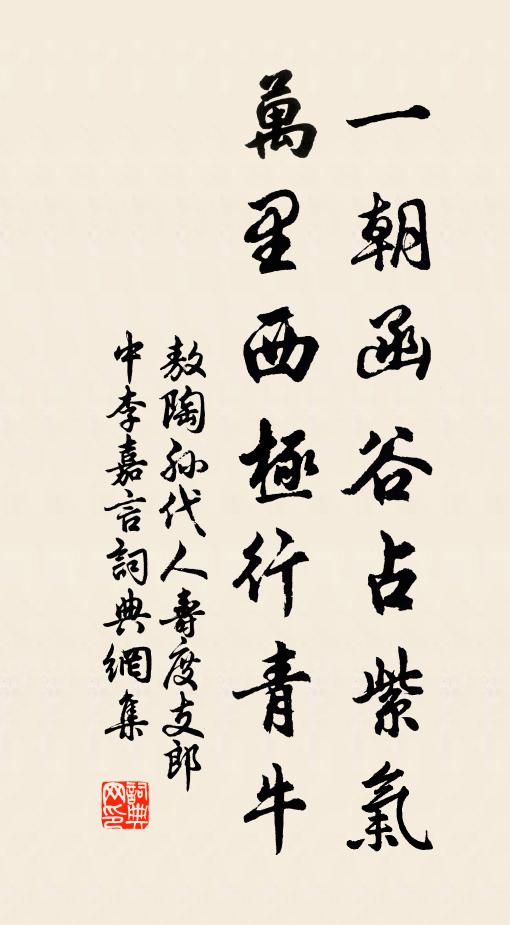 一朝函谷占紫氣
萬里西極行青牛
敖陶孫代人壽度支郎
中李嘉言詞典網集
詞典网印